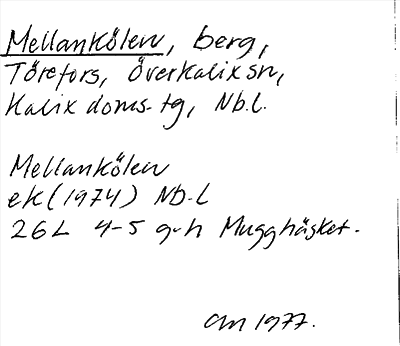 Mellankölen, berg,
Törefors, Överkalix sn,
Kalix doms. tg, Nb.l.
Mellankölen
ek (1974) Nb-L
26L 4-5 g-h Mugghäsket.
1977.